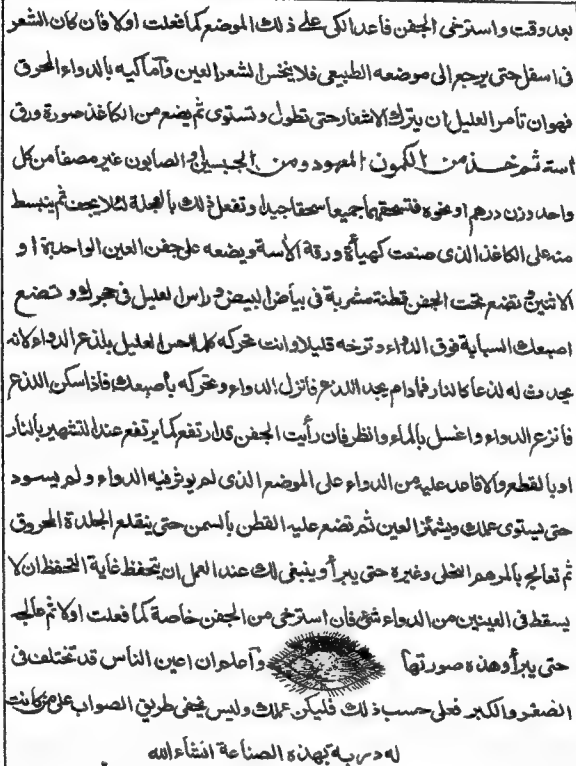 بعد وقت واسترخى الجفن فاعد الكى على ذلك الموضع كما فعلت اولا فان كان الشعر
فى اسفل حتى يرجع الى موضعه الطبيعى فلا ينخس الشعر العين وأما كيه بالدواء المحرق
فهوان تأمر العليل ان يترك الاشفار حتى تطول وتستوى ثم يضع من الكاغذ صورة ورق
اسة ثم خذ من الكمون المعهود ومن الجبسين والصابون غير مصفا من كل
واحد وزن درهم او نحوه فتسحقهما جميعا سحقا جيدا وتفعل ذلك بالعجلة لئلا يجف ثم ينبسط
منه على الكاغذ الذى صنعت كهيأة ورقة الأسة ويضعه على جفن العين الواحدة او
الاثنين وتضع تحت الجفن قطنة مشربة فى بياض البيض وراس العليل فى حجرك وتضع
اصبعك السبابة فوق الدواء وترخه قليلا وانت تحركه كلما احس العليل بلذع الدواء لانه
يحدث له لذعا كالنار فمادام يجد اللذع فانزل الدواء وتحركه بأصبعك فاذا سكن اللذع
فأنزع الدواء واغسل بالماء وانظر فان رأيت الجفن قد ارتفع كما يرتفع عند التشمير بالنار
او بالقطع والا فاعد عليه من الدواء على الموضع الذى لم يوثر فيه الدواء ولم يسود
حتى يستوى عملك ويشمّز العين ثم تضع عليه القطن بالسمن حتى ينقلع الجلدة المحروق
ثم تعالج بالمرهم النخلى وغيره حتى يبرأ وينبغى لك عند العمل ان يتحفظ غاية التحفظ ان لا
يسقط فى العينين من الدواء شئ فان استرخى من الجفن خاصة كما فعلت اولا ثم عالجه
حتى يبرأ وهذه صورتها وأعلم ان اعين الناس قد تختلف فى
الصغر والكبر فعلى حسب ذلك فليكن عملك وليس يخفى طريق الصواب على من كانت
له دربة بهذه الصناعة انشاءالله